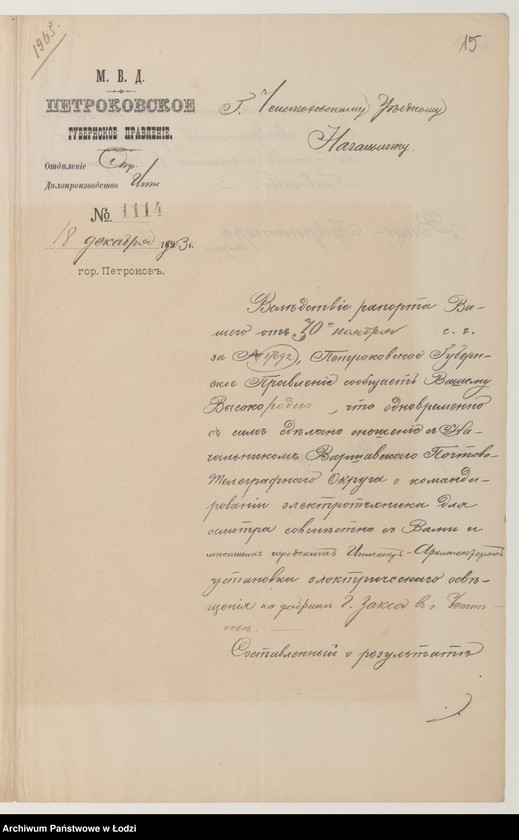 1963
15
М. В. Д.
ПЕТРОКОВСКОЕ
ГУБЕРНСКОЕ ПРАВЛЕНІЕ.
Отдѣленіе Стр.
Дѣлопроизводство
№ 1114
18 декабря 1903 г.
гор. Петроковъ.
Г. Ченстоховскому Уѣздному
Начальнику.
Вслѣдствіе рапорта Ва-
шего отъ 30го ноября с. г.
за № 17692, Петроковское Губерн-
ское Правленіе сообщаетъ Вашему
Высокородію, что одновременно
съ симъ сдѣлано сношеніе съ На-
чальникомъ Варшавскаго Почтово-
Телеграфнаго Округа о команди-
рованіи электротехника для
осмотра совмѣстно съ Вами и
мѣстнымъ городскимъ Инженер-Архитекторомъ
установки электрическаго освѣ-
щенія на фабрикѣ Г. Закса въ г. Ченст-
Составленный о результатѣ
Archiwum Państwowe w Łodzi